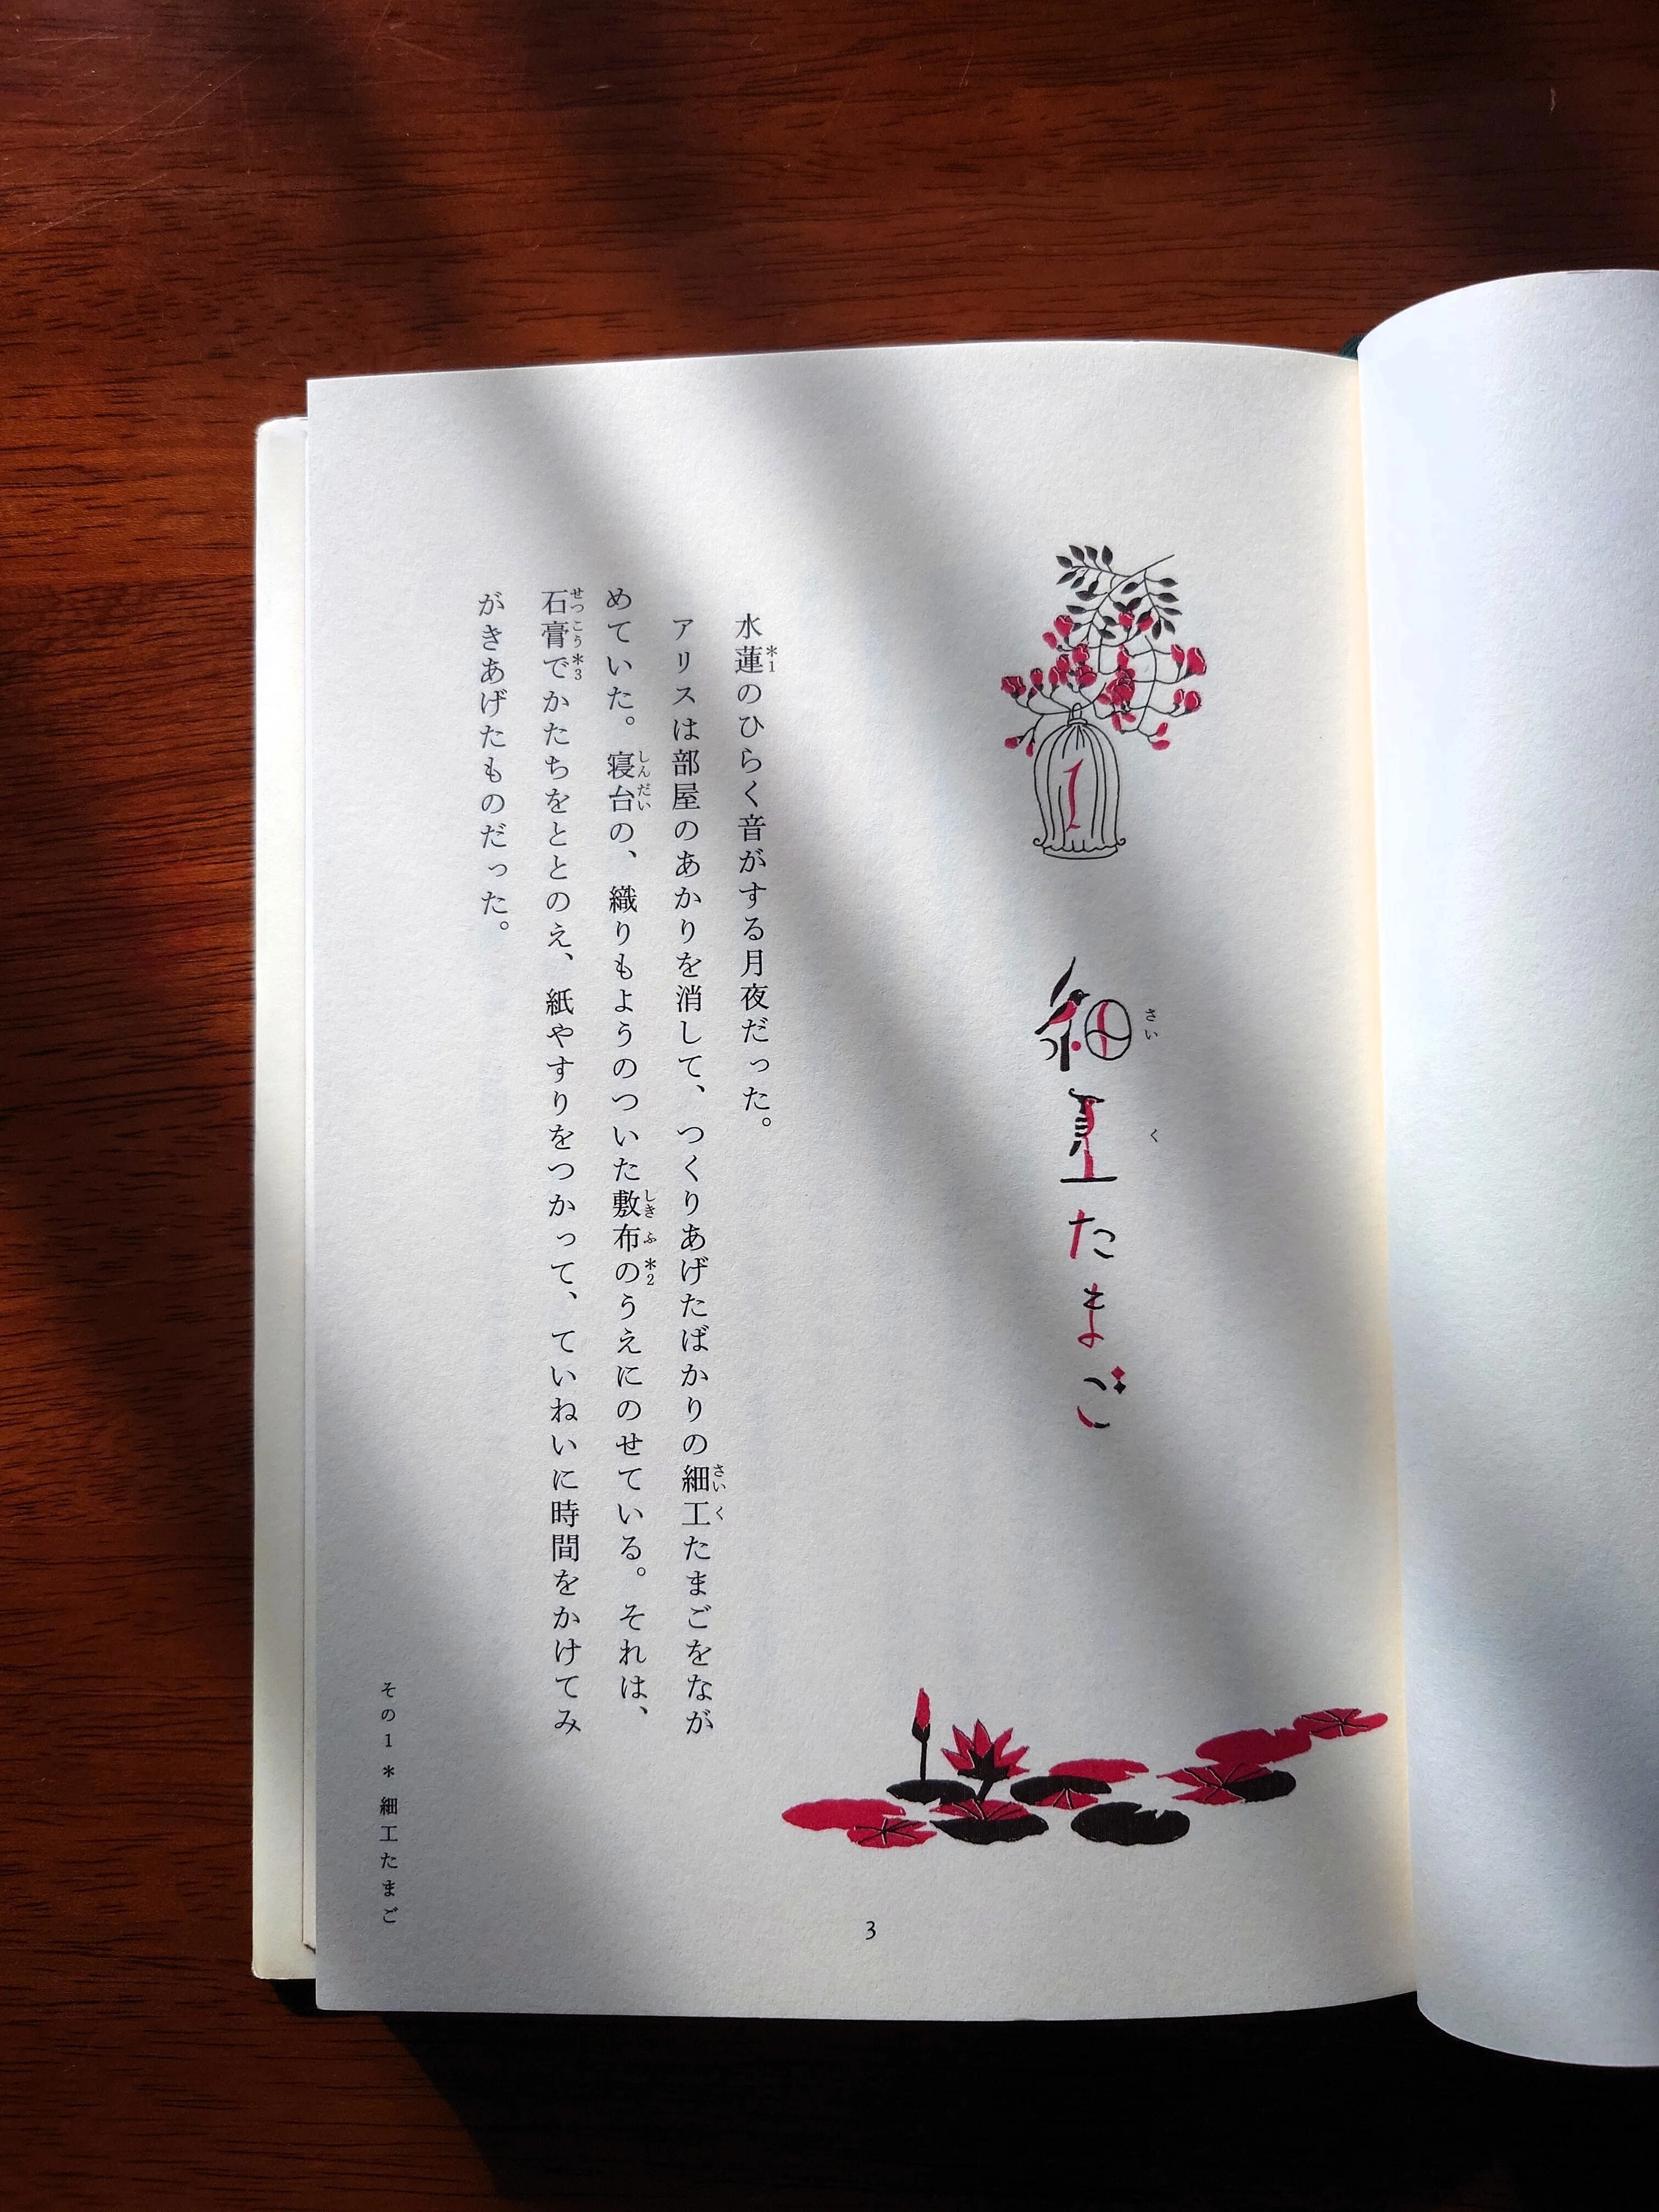 1
細工たまご
さいく
水蓮のひらく音がする月夜だった。
*1
アリスは部屋のあかりを消して、つくりあげたばかりの細工たまごをなが
さいく
めていた。寝台の、織りもようのついた敷布のうえにのせている。それは、
しんだい
しきふ*2
石膏でかたちをととのえ、紙やすりをつかって、ていねいに時間をかけてみ
せっこう*3
がきあげたものだった。
その1*細工たまご
3